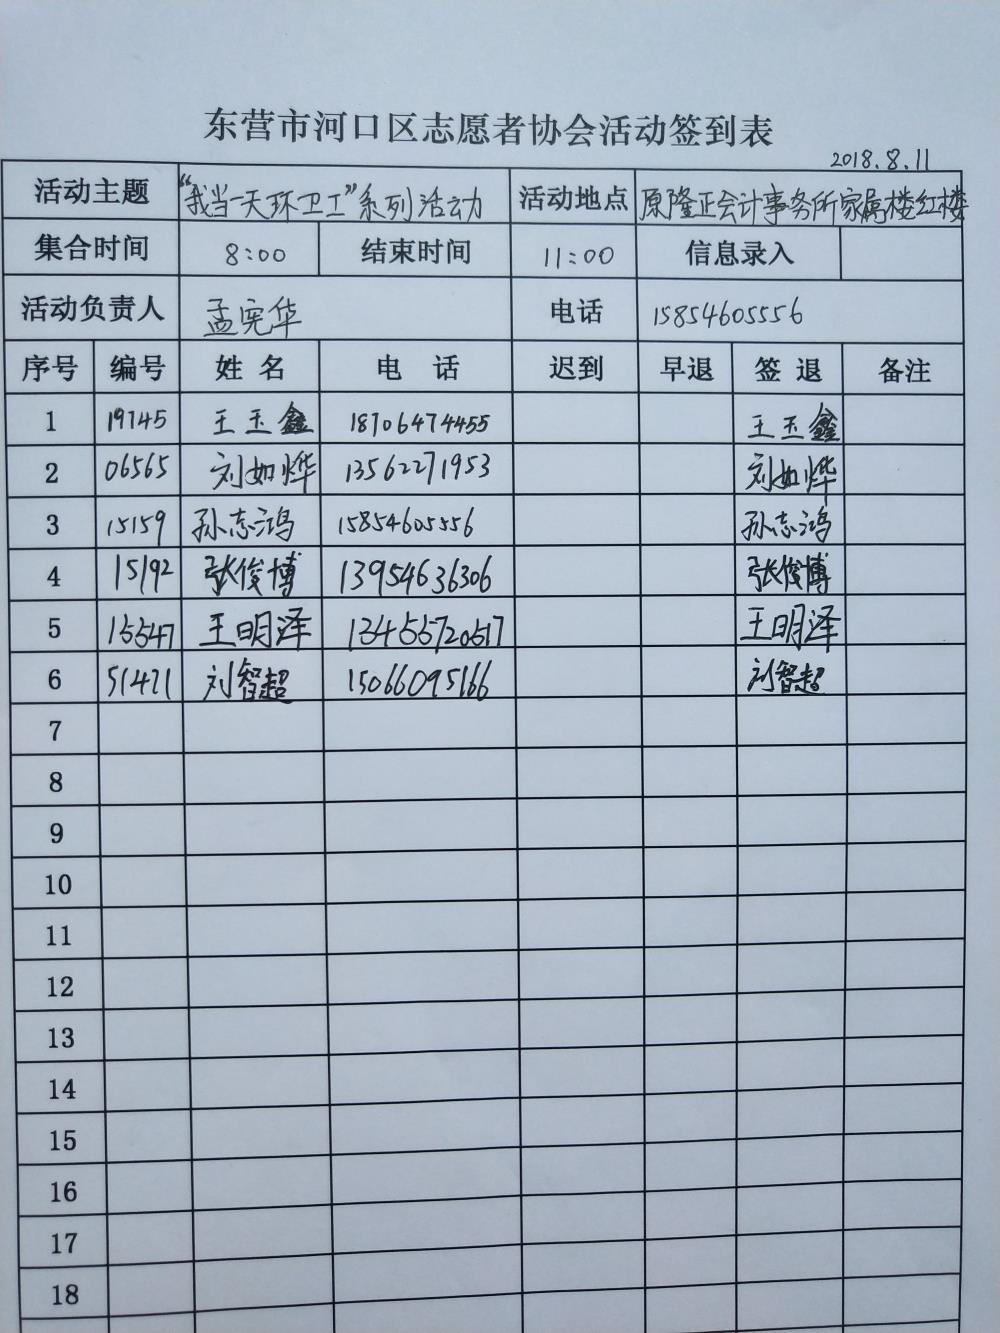 东营市河口区志愿者协会活动签到表
2018.8.11
活动主题 “我当一天环卫工”系列活动 活动地点 原隆正会计事务所家属楼红楼
集合时间 8:00 结束时间 11:00 信息录入
活动负责人 孟宪华 电话 15854605556
序号 编号 姓名 电话 迟到 早退 签退 备注
1 19745 王玉鑫 18706474455 王玉鑫
2 06565 刘如烨 13562271953 刘如烨
3 15159 孙志鸿 15854605556 孙志鸿
4 15192 张俊博 13954636306 张俊博
5 15547 王明泽 13455720517 王明泽
6 51471 刘智超 15066095166 刘智超
7
8
9
10
11
12
13
14
15
16
17
18